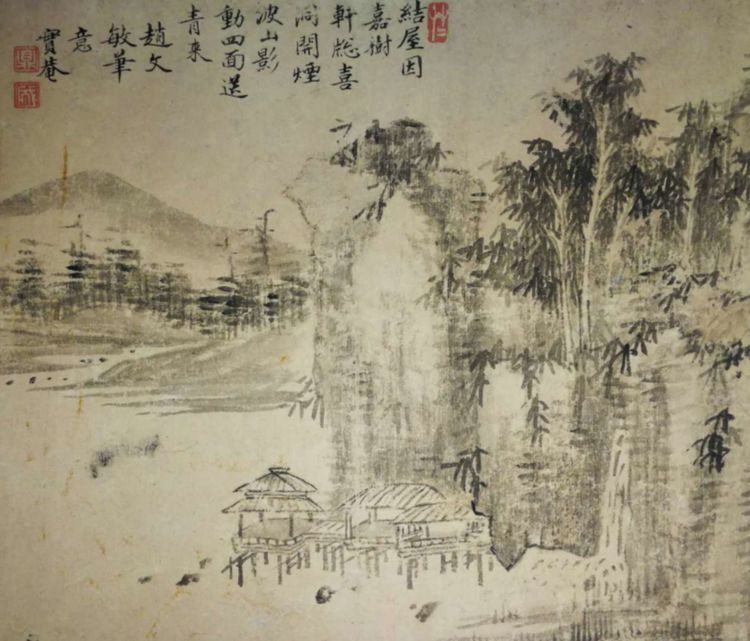 結屋因
嘉樹
軒牕喜
洞開煙
波山影
動四面送
青來
趙文
敏筆
意
實菴